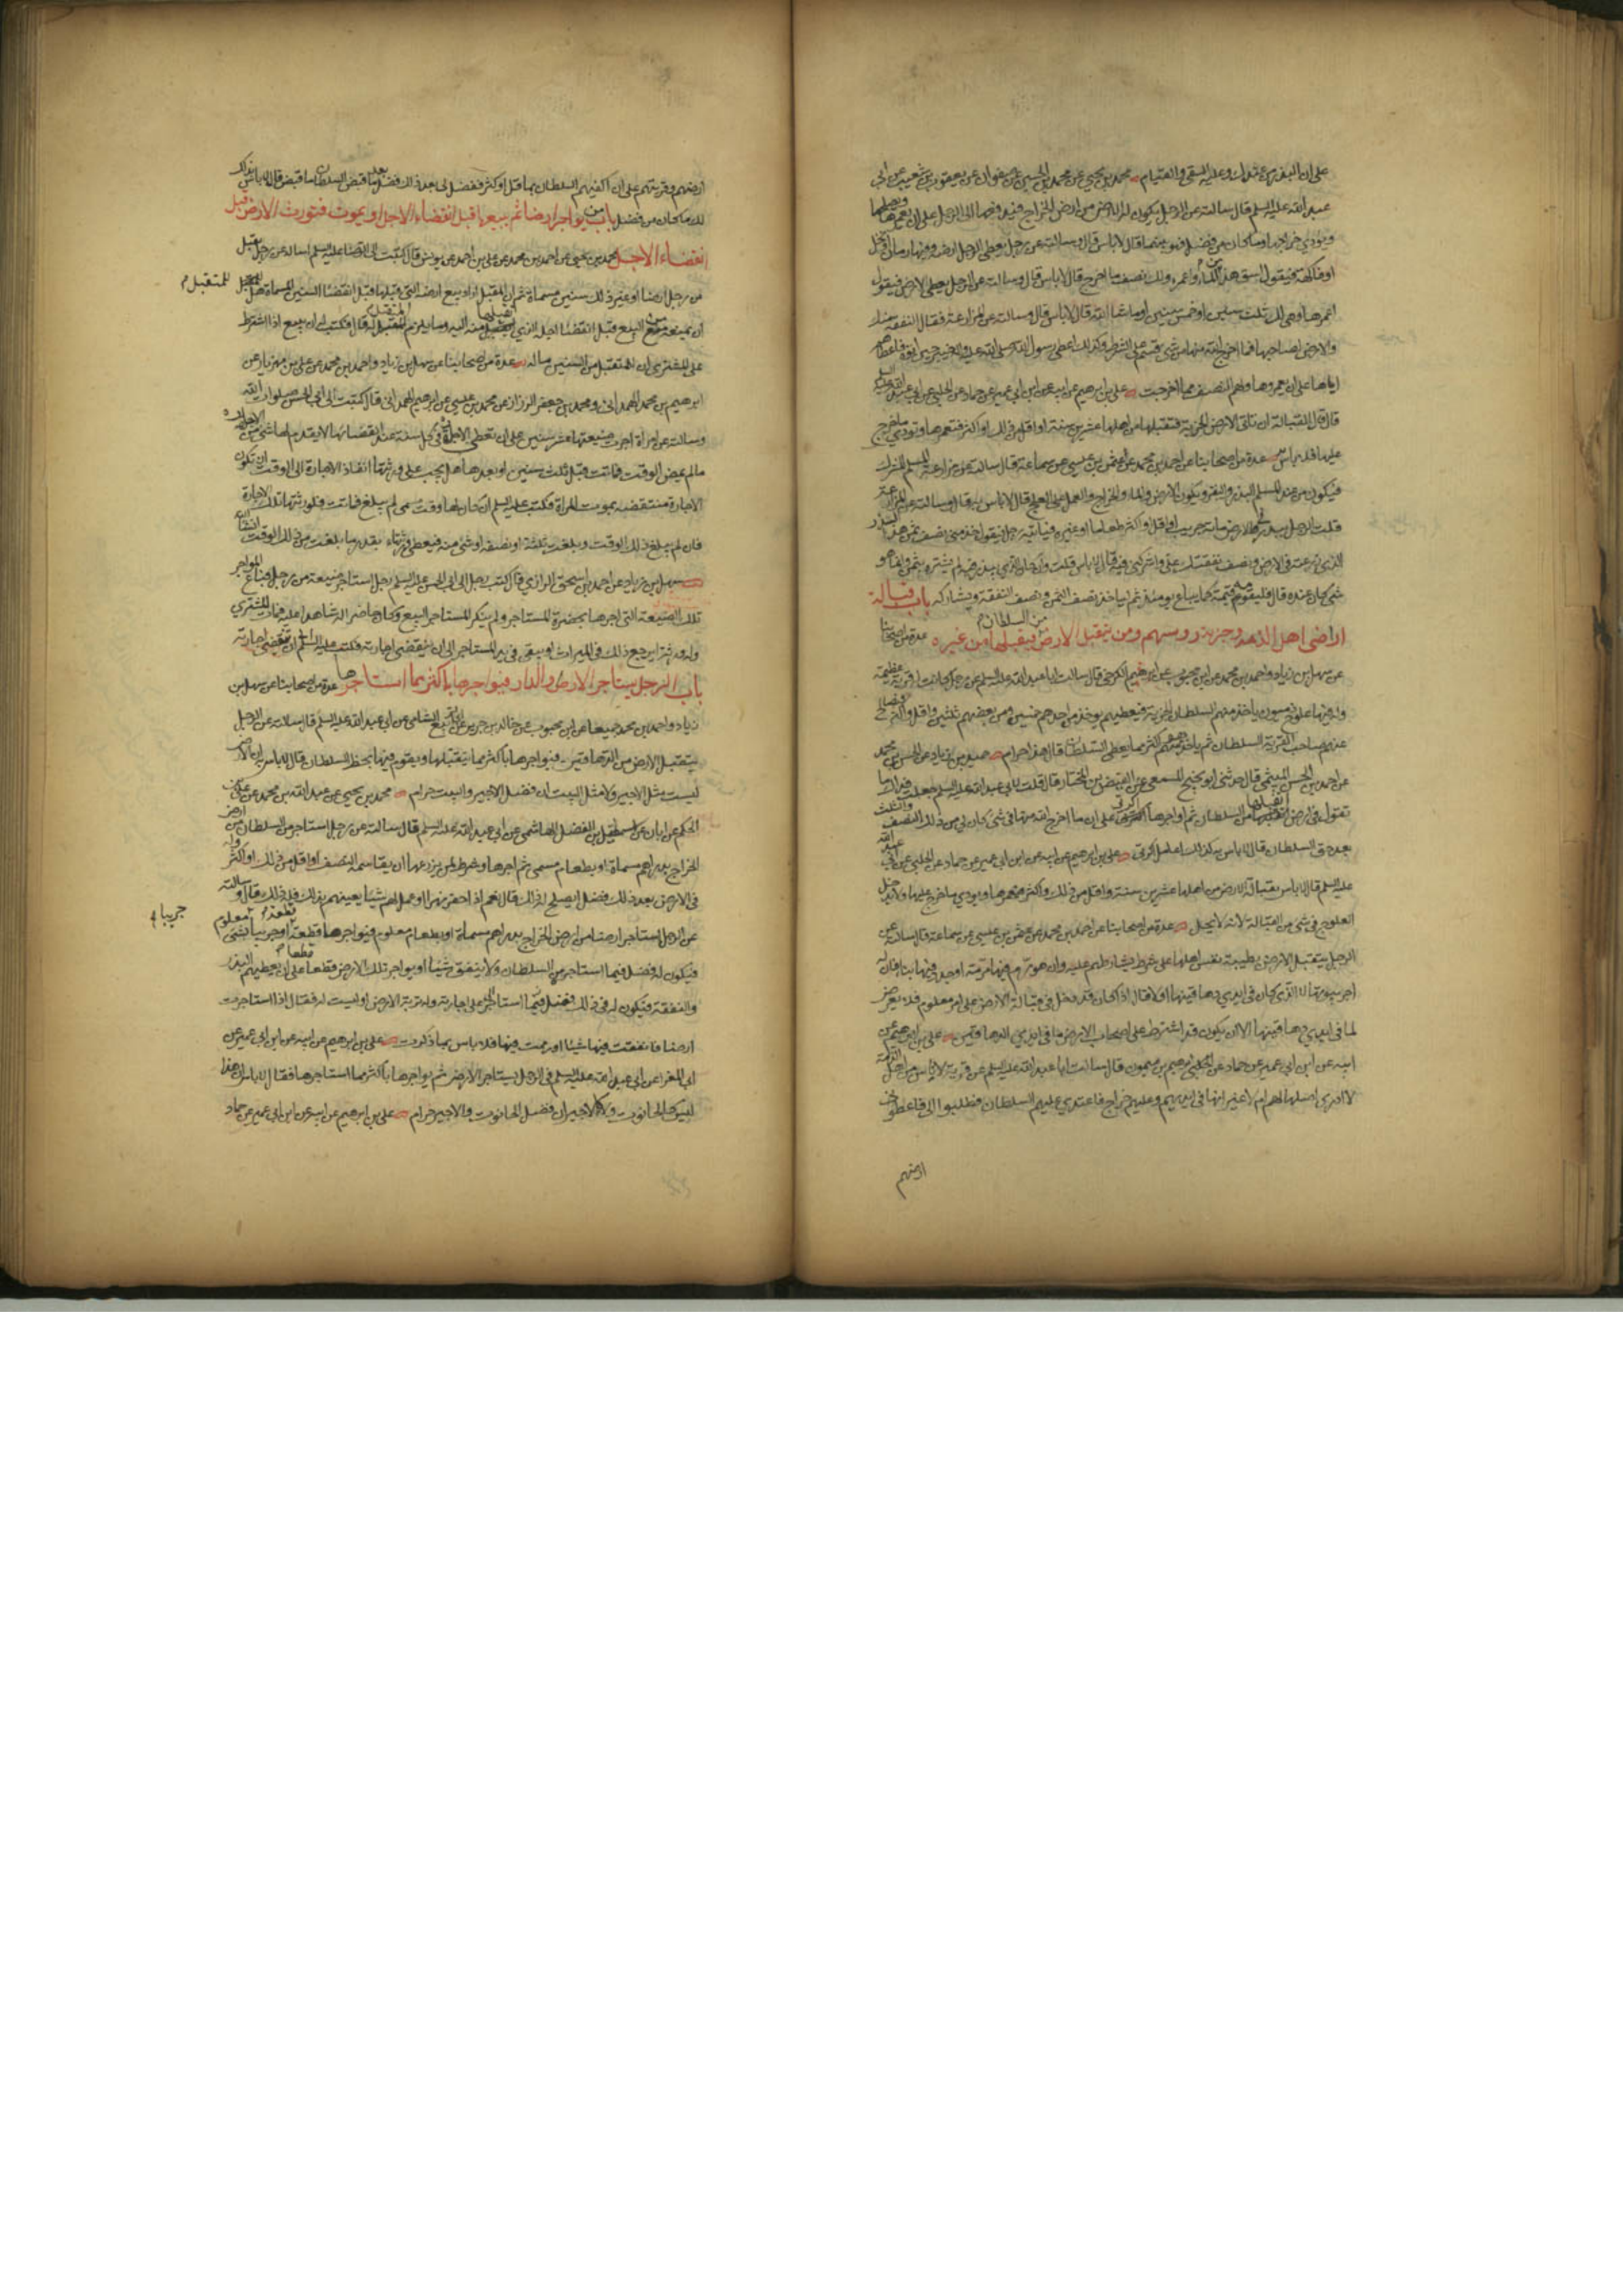 محمد بن يحيى عن محمد بن الحسين عن صفوان عن يعقوب بن شعيب عن ابي
عبد الله عليه السلم قال سالته عن الرجل يكون له الارض من ارض الخراج فيدفعها الى الرجل على ان يعمرها ويصلحها
ويؤدي خراجها وما كان من فضل فهو بينهما قال لا باس قال وسالته عن رجل يعطي الرجل ارضه وفيها رمان او نخل
او فاكهة فيقول اسق هذا من الماء واعمره ولك نصف ما اخرج قال لا باس قال وسالته عن الرجل يعطي الارض فيقول
اعمرها وهي لك ثلث سنين او خمس سنين او ما شا الله قال لا باس قال وسالته عن المزارعة فقال النفقة منك
والارض لصاحبها فما اخرج الله منها من شي قسم على الشرط وكذلك اعطى رسول الله صلى الله عليه واله خيبر حين اتوه فاعطاهم
اياها على ان يعمروها ولهم النصف مما اخرجت علي بن ابرهيم عن ابيه عن ابن ابي عمير عن حماد عن الحلبي عن ابي عبد الله عليه السلم
قال القبالة ان تاتي الارض الخربة فتقبلها من اهلها عشرين سنة او اقل من ذلك او اكثر فتعمرها وتؤدي ما خرج
عليها فلا باس به عدة من اصحابنا عن احمد بن محمد عن عثمن بن عيسى عن سماعة قال سالته عن مزارعة المسلم المشرك
فيكون من عند المسلم البذر والبقر ويكون الارض والماء والخراج والعمل على العلج قال لا باس به قال وسالته عن المزارعة
قلت الرجل يبذر في الارض مائة جريب او اقل او اكثر طعاما او غيره فياتيه رجل فيقول خذ مني نصف ثمن هذا البذر
الذي زرعته في الارض ونصف نفقتك علي واشركني فيه قال لا باس قلت وان كان الذي يبذر فيه لم يشتره بثمن وانما هو
شي كان عنده قال فليقومه قيمة كما يباع يومئذ ثم لياخذ نصف الثمن ونصف النفقة ويشاركه باب قبالة
اراضي اهل الذمة وجزية روسهم ومن يتقبل الارض من السلطان فيقبلها من غيره عدة من اصحابنا
عن سهل بن زياد واحمد بن محمد عن ابن محبوب عن ابرهيم الكرخي قال سالت ابا عبد الله عليه السلم عن رجل كانت له قرية عظيمة
وله فيها علوج ذميون ياخذ منهم السلطان الجزية فيعطيهم يوخذ من احدهم خمسين ومن بعضهم ثلثين واقل واكثر
عنهم صاحب القرية السلطان ثم ياخذ هو منهم اكثر مما يعطي السلطان قال هذا حرام حميد بن زياد عن الحسن بن محمد
عن احمد بن الحسن الميثمي قال حدثني ابو نجيح المسمعي عن الفيض بن المختار قال قلت لابي عبد الله عليه السلم جعلت فداك ما
تقول في ارض اتقبلها من السلطان ثم اواجرها اكرتي على ان ما اخرج الله منها في شي كان لي من ذلك النصف والثلث
بعد حق السلطان قال لا باس به كذلك اعامل اكرتي علي بن ابرهيم عن ابيه عن ابن ابي عمير عن حماد عن الحلبي عن ابي عبد الله
عليه السلم قال لا باس بقبالة الارض من اهلها عشرين سنة واقل من ذلك واكثر فيعمرها ويودي ما خرج عليها ولا يدخل
العلوج في شي من القبالة لانه لا يحل عدة من اصحابنا عن احمد بن محمد عن عثمن بن عيسى عن سماعة قال سالته عن
الرجل يتقبل الارض بطيبة نفس اهلها على شرط يشارطهم عليه وان هو رم فيها مرمة او جدد فيها بنا فان له
اجر بيوتها الا الذي كان في ايدي دهاقينها اولا قال اذا كان قد دخل في قبالة الارض على امر معلوم فلا يعرض
لما في ايدي دهاقينها الا ان يكون قد اشترط على اصحاب الارض ما في ايدي الدهاقين علي بن ابرهيم عن
ابيه عن ابن ابي عمير عن حماد عن الحلبي ابرهيم بن ميمون قال سالت ابا عبد الله عليه السلم عن قرية لاناس من اهل الذمة
لا ادري اصلها لهم ام لا غير انها في ايديهم وعليهم خراج فاعتدى عليهم السلطان فطلبوا الي فاعطوني
ارضهم
ارضهم وقريتهم على ان اكفيهم السلطان بما قل او كثر ففضل لي بعد ذلك فضل بعد ما قبض السلطان ما قبض قال لا باس بذلك
لك ما كان من فضل باب من يواجر ارضا ثم يبيعها قبل انقضاء الاجل او يموت فتورث الارض قبل
انقضاء الاجل محمد بن يحيى عن احمد بن محمد عن علي بن احمد عن يونس قال كتبت الى الرضا عليه السلم اساله عن رجل تقبل
من رجل ارضا او غير ذلك سنين مسماة ثم ان المقبل اراد بيع ارضه التي قبلها قبل انقضا السنين المسماة هل للمتقبل
للمتقبل
ان يمنعه من البيع قبل انقضا اجله الذي تقبلها منه اليه وما يلزم المتقبل له قال فكتب له ان يبيع اذا اشترط
على المشتري ان للمتقبل من السنين ماله عدة من اصحابنا عن سهل بن زياد واحمد بن محمد عن علي بن مهزيار عن
ابرهيم بن محمد الهمداني ومحمد بن جعفر الرزاز عن محمد بن عيسى عن ابرهيم الهمداني قال كتبت الى ابي الحسن صلوات الله
وسالته عن امراة اجرت ضيعتها عشر سنين على ان تعطى الاجارة في كل سنة عند انقضائها لا يقدم لها شي من الاجارة
مالم يمض الوقت فماتت قبل ثلث سنين او بعدها هل يجب على ورثتها انفاذ الاجارة الى الوقت ام تكون
الاجارة منتقضة بموت المراة فكتب عليه السلم ان كان لها وقت مسمى لم يبلغ فماتت فلورثتها تلك الاجارة
فان لم يبلغ ذلك الوقت وبلغت ثلثه او نصفه او شي منه فيعطى ورثتها بقدر ما بلغت من ذلك الوقت انشاء الله
سهل بن زياد عن احمد بن اسحق الرازي قال كتب رجل الى ابي الحسن عليه السلم رجل استاجر ضيعة من رجل فباع المواجر
تلك الضيعة التي اجرها بحضرة المستاجر ولم ينكر المستاجر البيع وكان حاضرا له شاهدا عليه فمات المشتري
وله ورثة ايرجع ذلك في الميراث او يبقى في يد المستاجر الى ان ينقضي اجارته فكتب عليه السلم الى ان تنقضي اجارته
باب الرجل يستاجر الارض والدار فيواجرها باكثر مما استاجرها عدة من اصحابنا عن سهل بن
زياد واحمد بن محمد جميعا عن ابن محبوب عن خالد بن جرير عن ابي الربيع الشامي عن ابي عبد الله عليه السلم قال سالته عن الرجل
يتقبل الارض من الدهاقين فيواجرها باكثر مما يتقبلها ويقوم فيها بحظ السلطان قال لا باس به ان الارض
ليست مثل الاجير ولا مثل البيت ان فضل الاجير والبيت حرام محمد بن يحيى عن عبد الله بن محمد عن علي بن
الحكم عن ابان عن اسمعيل بن الفضل الهاشمي عن ابي عبد الله عليه السلم قال سالته عن رجل استاجر من السلطان من ارض
الخراج بدراهم مسماة او بطعام مسمى ثم اجرها وشرط لمن يزرعها ان يقاسمه النصف او اقل من ذلك او اكثر وله
في الارض بعد ذلك فضل ايصلح له ذلك قال نعم اذا حفر نهرا او عمل لهم شيئا يعينهم بذلك فله ذلك قال وسالته
عن الرجل استاجر ارضا من ارض الخراج بدراهم مسماة او بطعام معلوم فيواجرها قطعة او جريبا بشي معلوم
جريبا
فيكون له فضل فيما استاجر من السلطان ولا ينفق شيئا او يواجر تلك الارض قطعا على ان يعطيهم البذر
والنفقة فيكون له في ذلك فضل على اجارته وله تربة الارض او ليست له فقال اذا استاجرت
ارضا فانفقت فيها شيئا او رممت فيها فلا باس بما ذكرت علي بن ابرهيم عن ابيه عن ابن ابي عمير عن
ابي المغرا عن ابي عبد الله عليه السلم في الرجل يستاجر الارض ثم يواجرها باكثر مما استاجرها فقال لا باس ان هذا
ليس كالحانوت ولا الاجير ان فضل الحانوت والاجير حرام علي بن ابرهيم عن ابيه عن ابن ابي عمير عن حماد